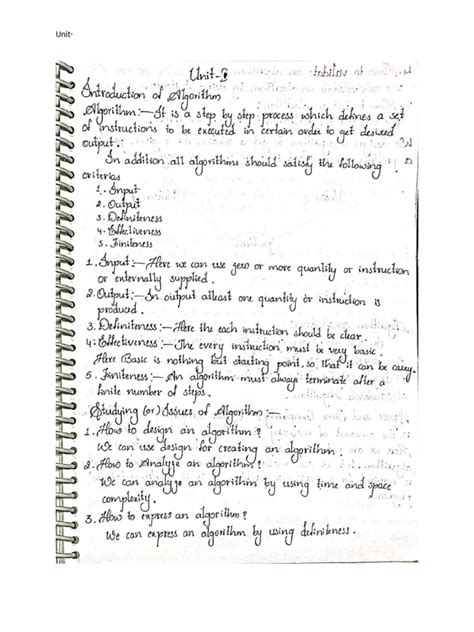 Unit-
Unit-I
Introduction of Algorithm
Algorithm:- It is a step by step process which defines a set
of instructions to be executed in certain order to get desired
output.
In addition all algorithms should satisfy the following
criterias
1. Input
2. Output
3. Definiteness
4. Effectiveness
5. Finiteness
1. Input:- Here we can use zero or more quantity or instruction
or externally supplied.
2. Output:- In output atleast one quantity or instruction is
produced.
3. Definiteness:- Here the each instruction should be clear.
4: Effectiveness:- The every instruction must be very basic.
Here Basic is nothing but starting point, so, that it can be carry.
5. Finiteness:- An algorithm must always terminate after a
finite number of steps.
Studying (or) Issues of Algorithm:-
1. How to design an algorithm?
We can use design for creating an algorithm.
2. How to Analyze an algorithm?
We can analyze an algorithm by using time and space
complexity.
3. How to express an algorithm?
We can express an algorithm by using definiteness.